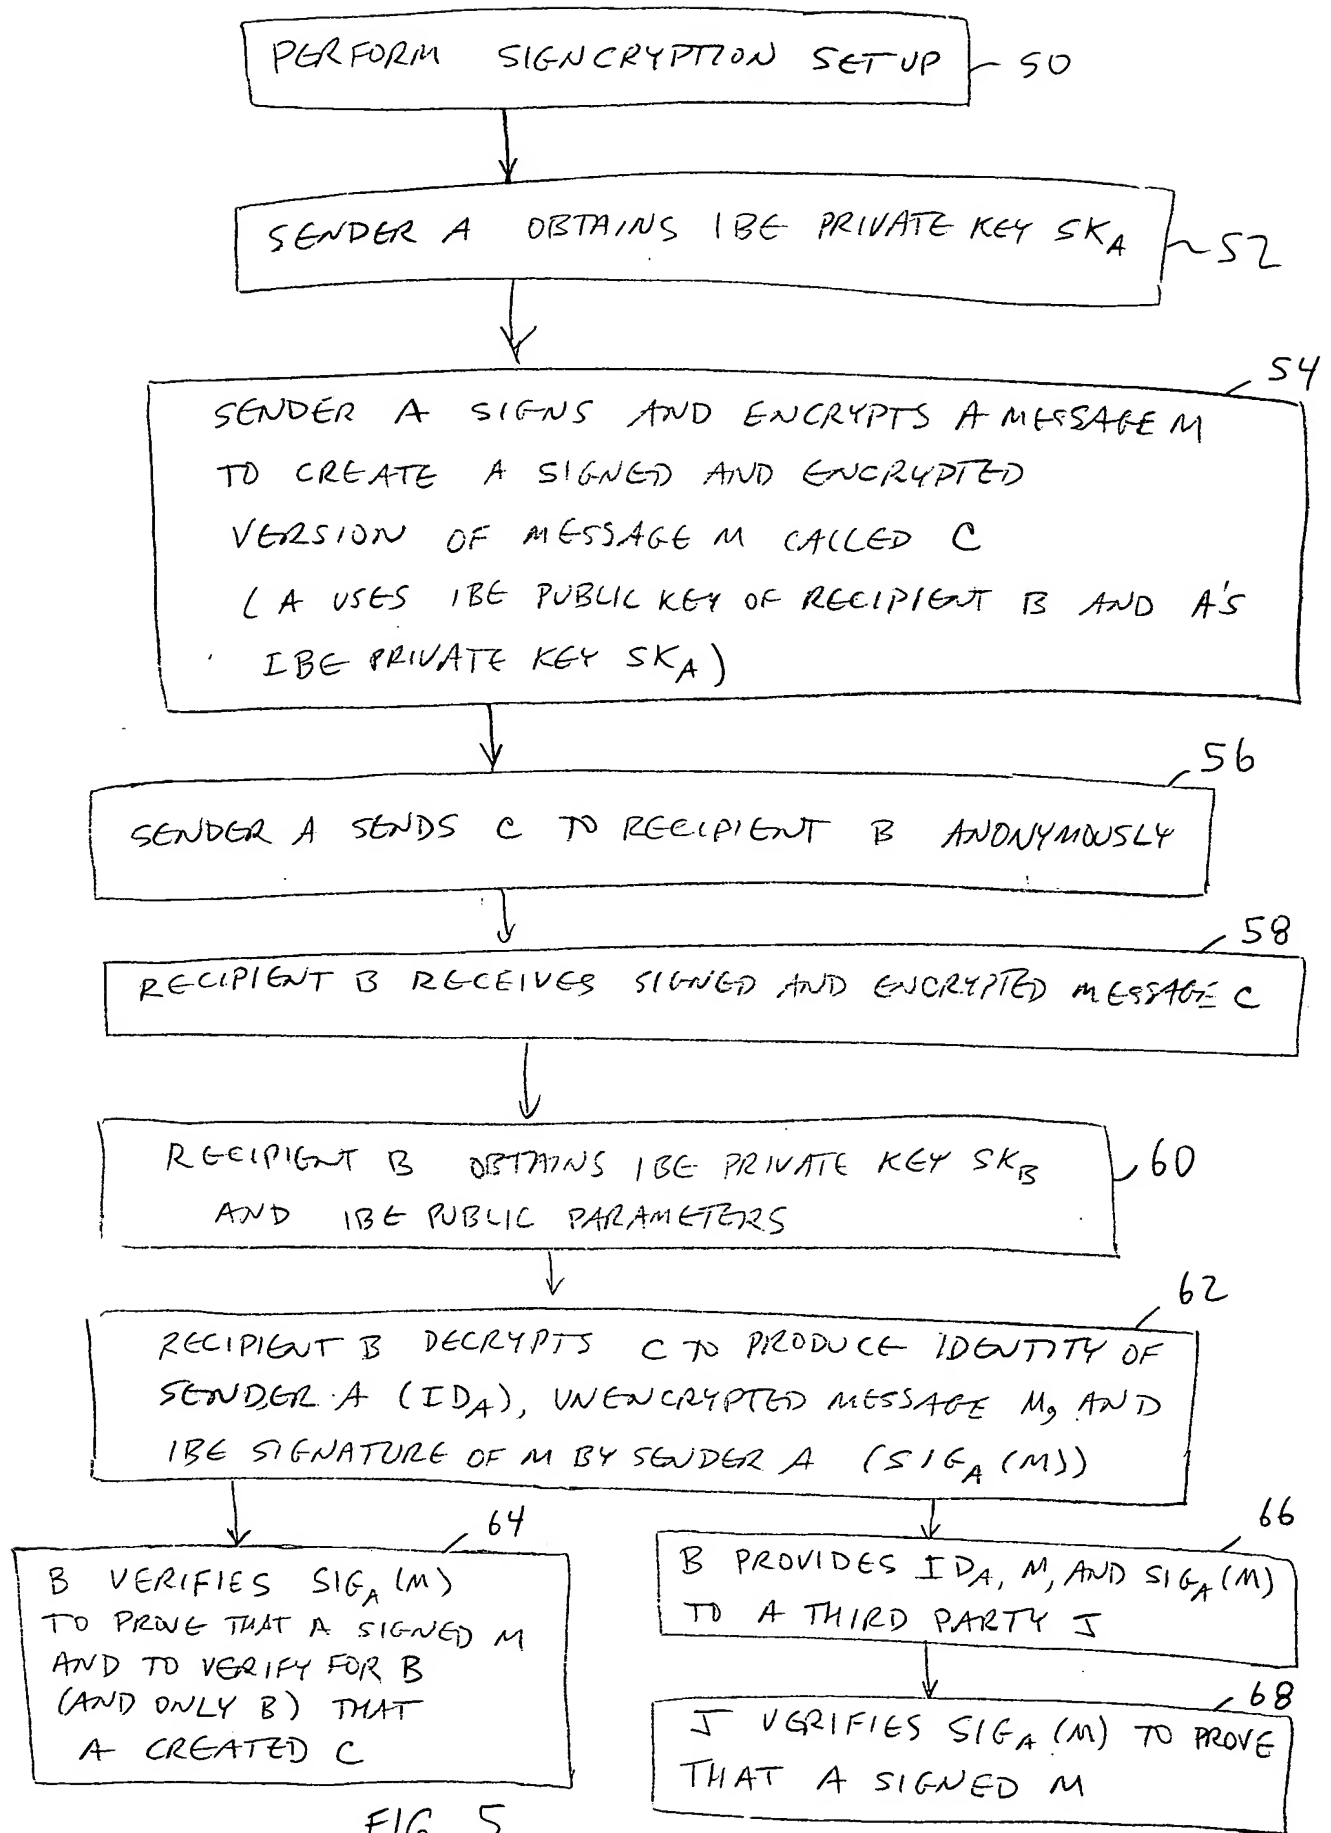 PERFORM SIGNCRYPTION SETUP 50
SENDER A OBTAINS IBE PRIVATE KEY SK_A 52
54
SENDER A SIGNS AND ENCRYPTS A MESSAGE M
TO CREATE A SIGNED AND ENCRYPTED
VERSION OF MESSAGE M CALLED C
(A USES IBE PUBLIC KEY OF RECIPIENT B AND A'S
IBE PRIVATE KEY SK_A)
56
SENDER A SENDS C TO RECIPIENT B ANONYMOUSLY
58
RECIPIENT B RECEIVES SIGNED AND ENCRYPTED MESSAGE C
RECIPIENT B OBTAINS IBE PRIVATE KEY SK_B 60
AND IBE PUBLIC PARAMETERS
62
RECIPIENT B DECRYPTS C TO PRODUCE IDENTITY OF
SENDER A (ID_A), UNENCRYPTED MESSAGE M, AND
IBE SIGNATURE OF M BY SENDER A (SIG_A (M))
64
B VERIFIES SIG_A (M)
TO PROVE THAT A SIGNED M
AND TO VERIFY FOR B
(AND ONLY B) THAT
A CREATED C
66
B PROVIDES ID_A, M, AND SIG_A (M)
TO A THIRD PARTY J
68
J VERIFIES SIG_A (M) TO PROVE
THAT A SIGNED M
FIG. 5